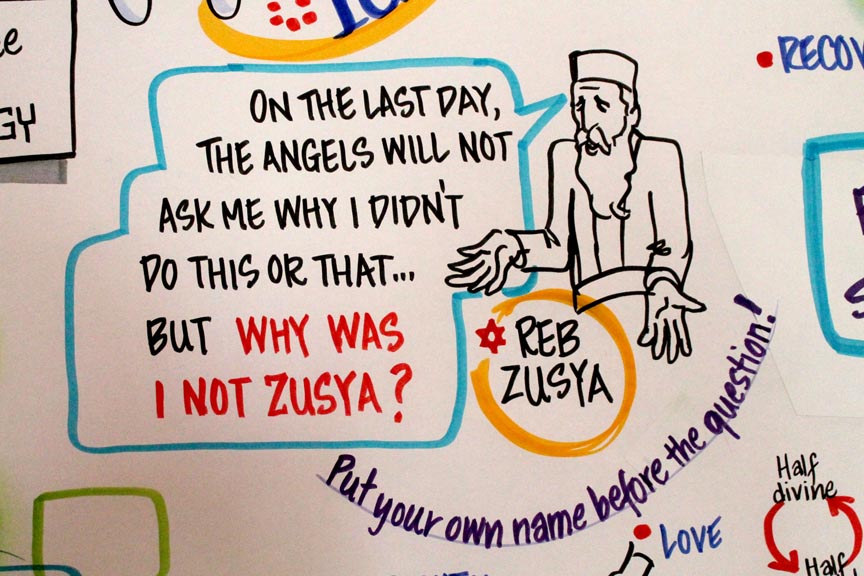 ON THE LAST DAY,
THE ANGELS WILL NOT
ASK ME WHY I DIDN'T
DO THIS OR THAT...
BUT WHY WAS
I NOT ZUSYA?
REB
ZUSYA
Put your own name before the question!
LOVE
Half
divine
Half